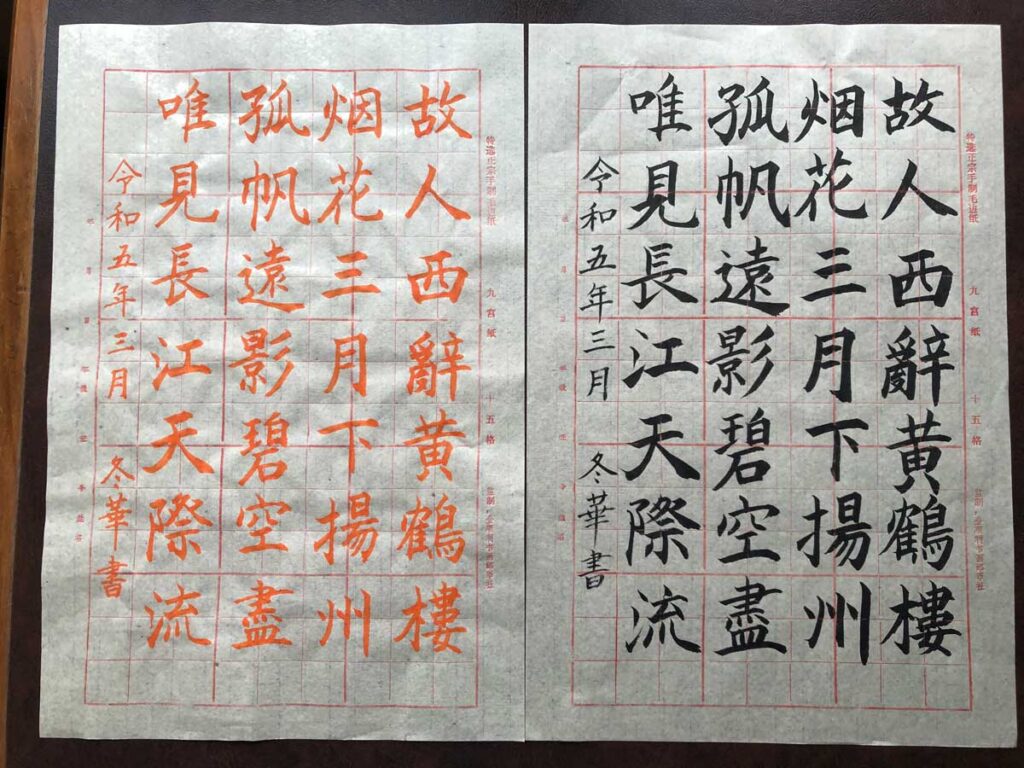 故人西辭黃鶴樓
烟花三月下揚州
孤帆遠影碧空盡
唯見長江天際流
令和五年三月 冬華書
九宮紙 十五格
故人西辭黃鶴樓
烟花三月下揚州
孤帆遠影碧空盡
唯見長江天際流
令和五年三月 冬華書
九宮紙 十五格